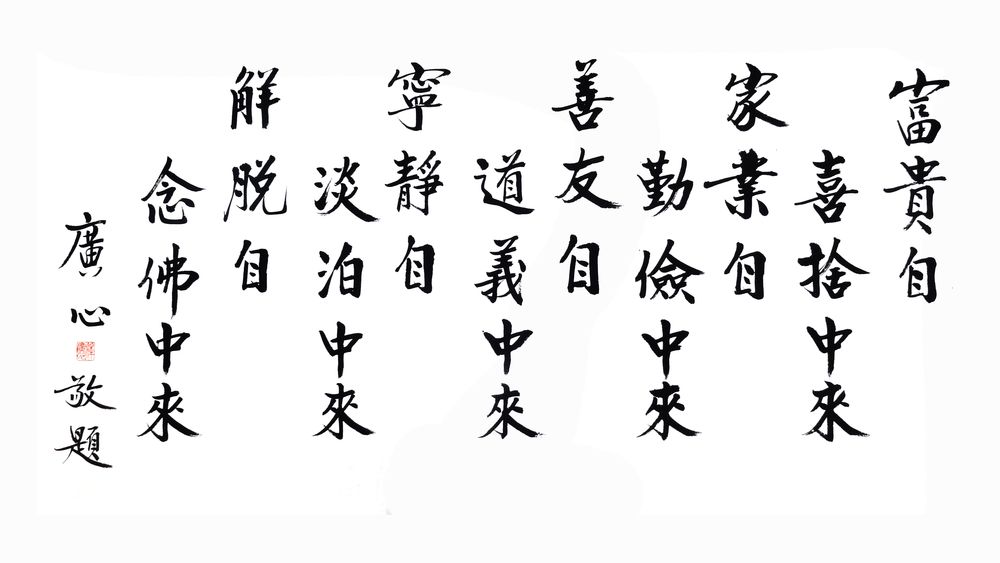 富貴自
喜捨中來
家業自
勤儉中來
善友自
道義中來
寧靜自
淡泊中來
解脫自
念佛中來
廣心敬題